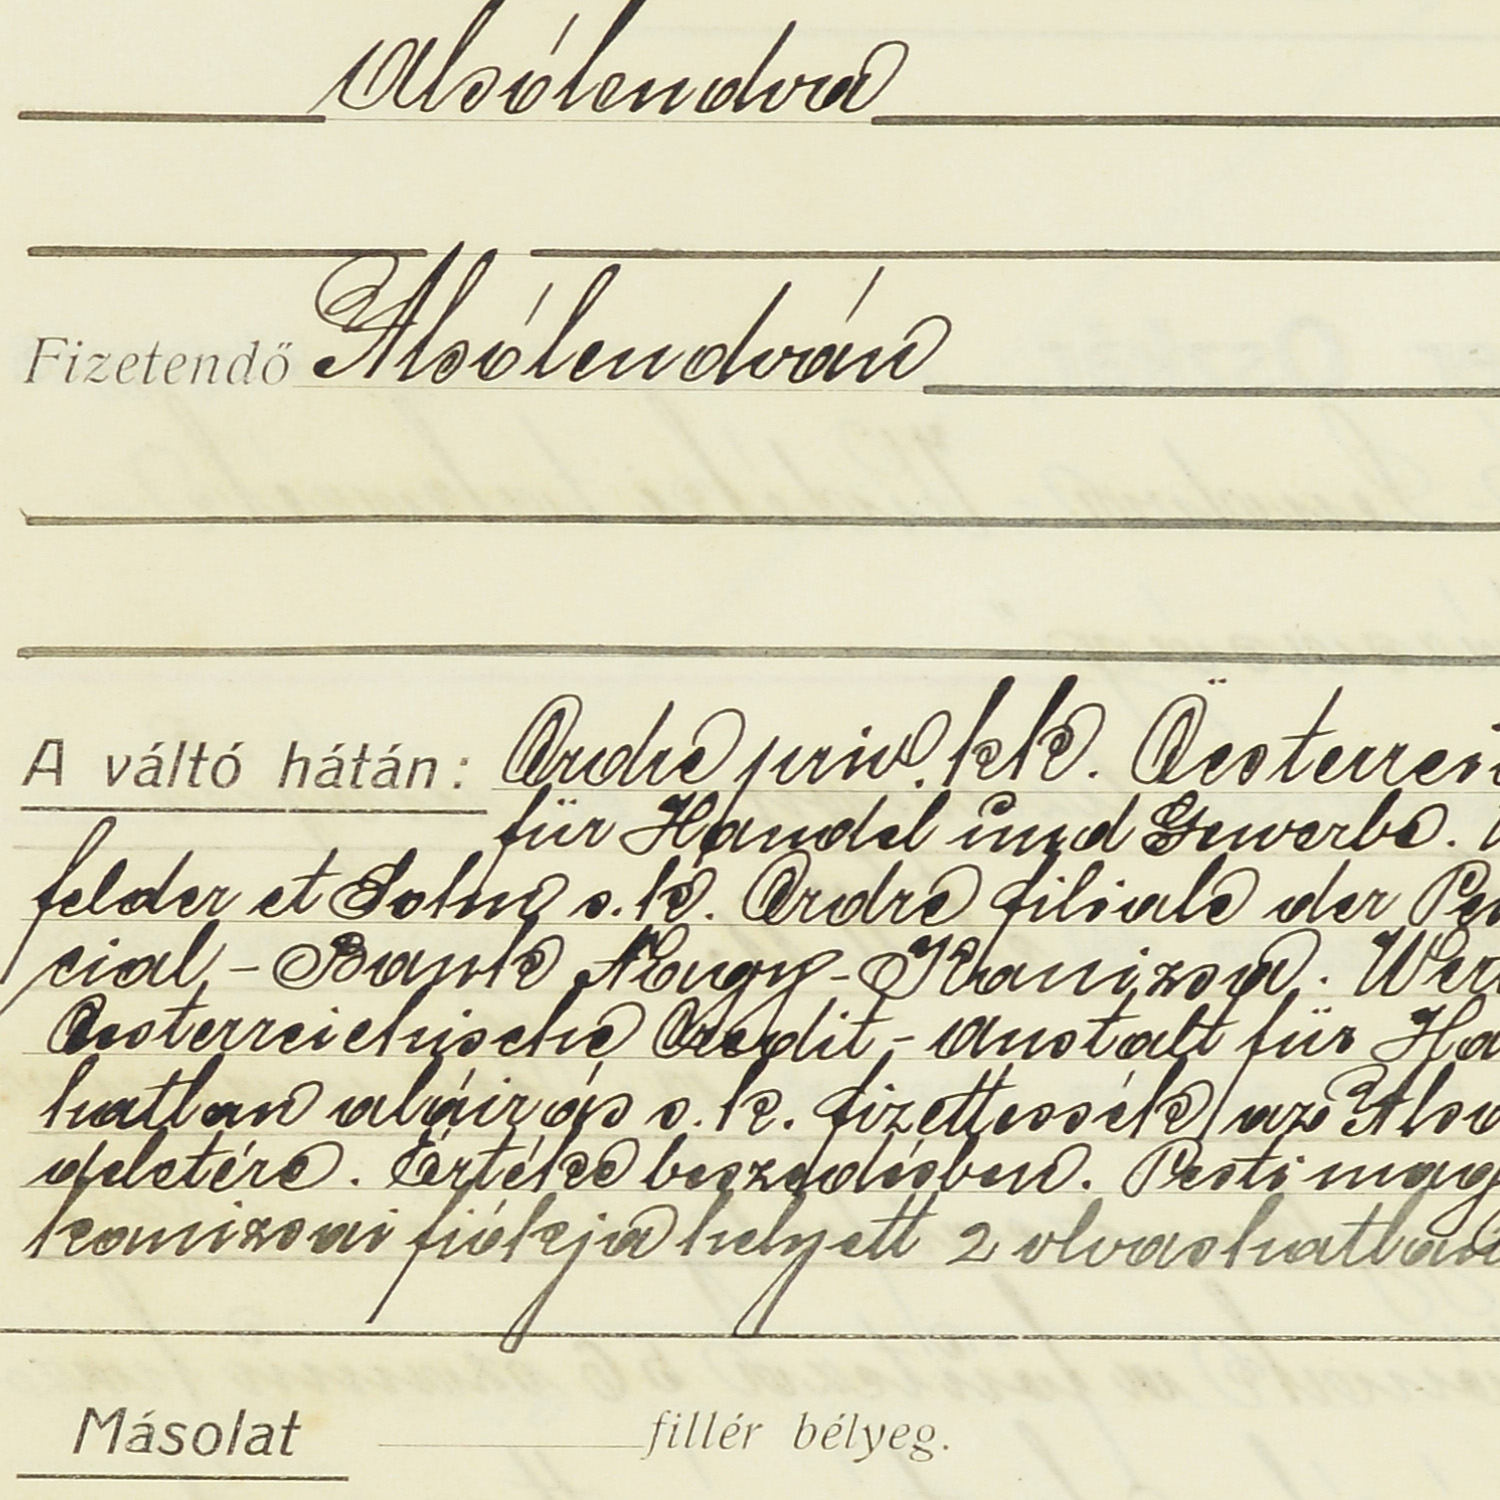 Alsólendva
Fizetendő Alsólendván
A váltó hátán: Ordre priv. kk. Öesterrei
für Handel und Gewerbe.
felder et Sohn s.k. Ordre filiale der Pes
cial - Bank Nagy-Kanizsa. Wer
Oesterreichische Credit-Anstalt für Ha
hatlan aláirás s.k. fizettessék az Also
deletére. Értéke beszedésben. Pesti magy
kanizsai fiókja helyett 2 olvashatlan
Másolat fillér bélyeg.